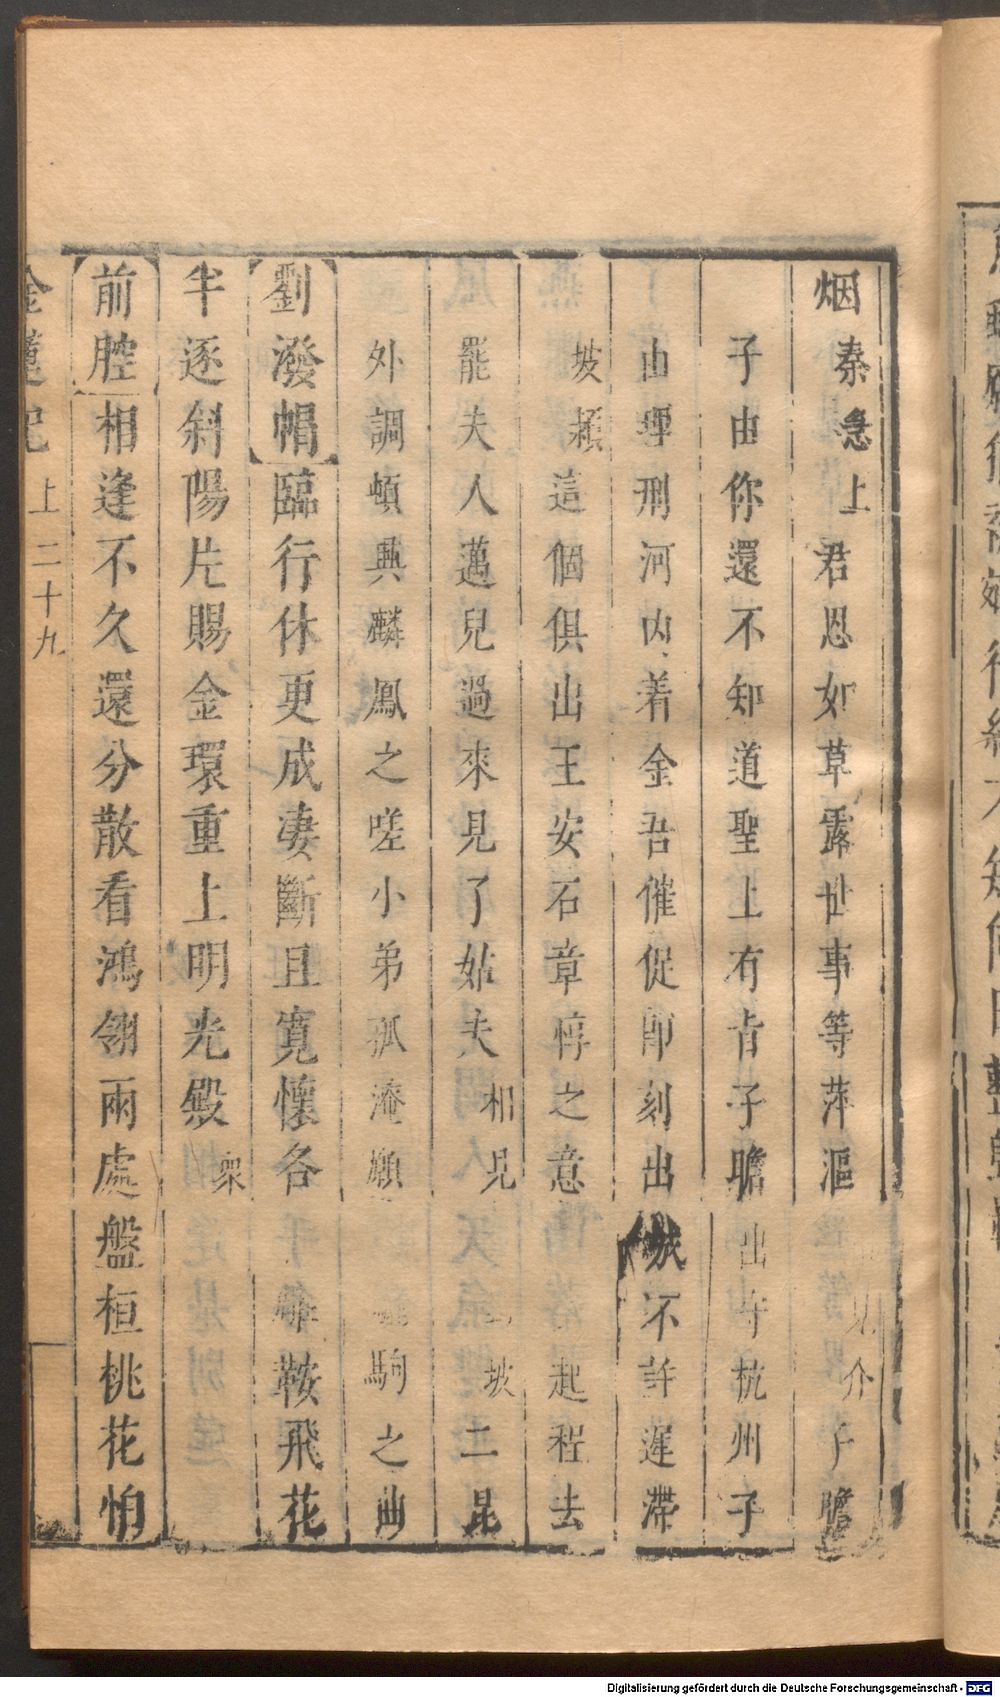 烟秦急上君恩如草露世事等萍漚見介子瞻
子由你還不知道聖上有旨子瞻出守杭州子
由理刑河內着金吾催促即刻出城不許遲滯
坡頹這個俱出王安石章惇之意起程去
罷夫人邁兒過來見了姑夫相見坡二昆
外調頓興麟鳳之嗟小弟孤淹願駒之曲
劉潑帽臨行休更成凄斷且寬懷各鞍飛花
半逐斜陽片賜金環重上明光殿衆
前腔相逢不久還分散看鴻翎兩處盤桓桃花怕
金蓮記上二十九
Digitalisierung gefördert durch die Deutsche Forschungsgemeinschaft - DFG